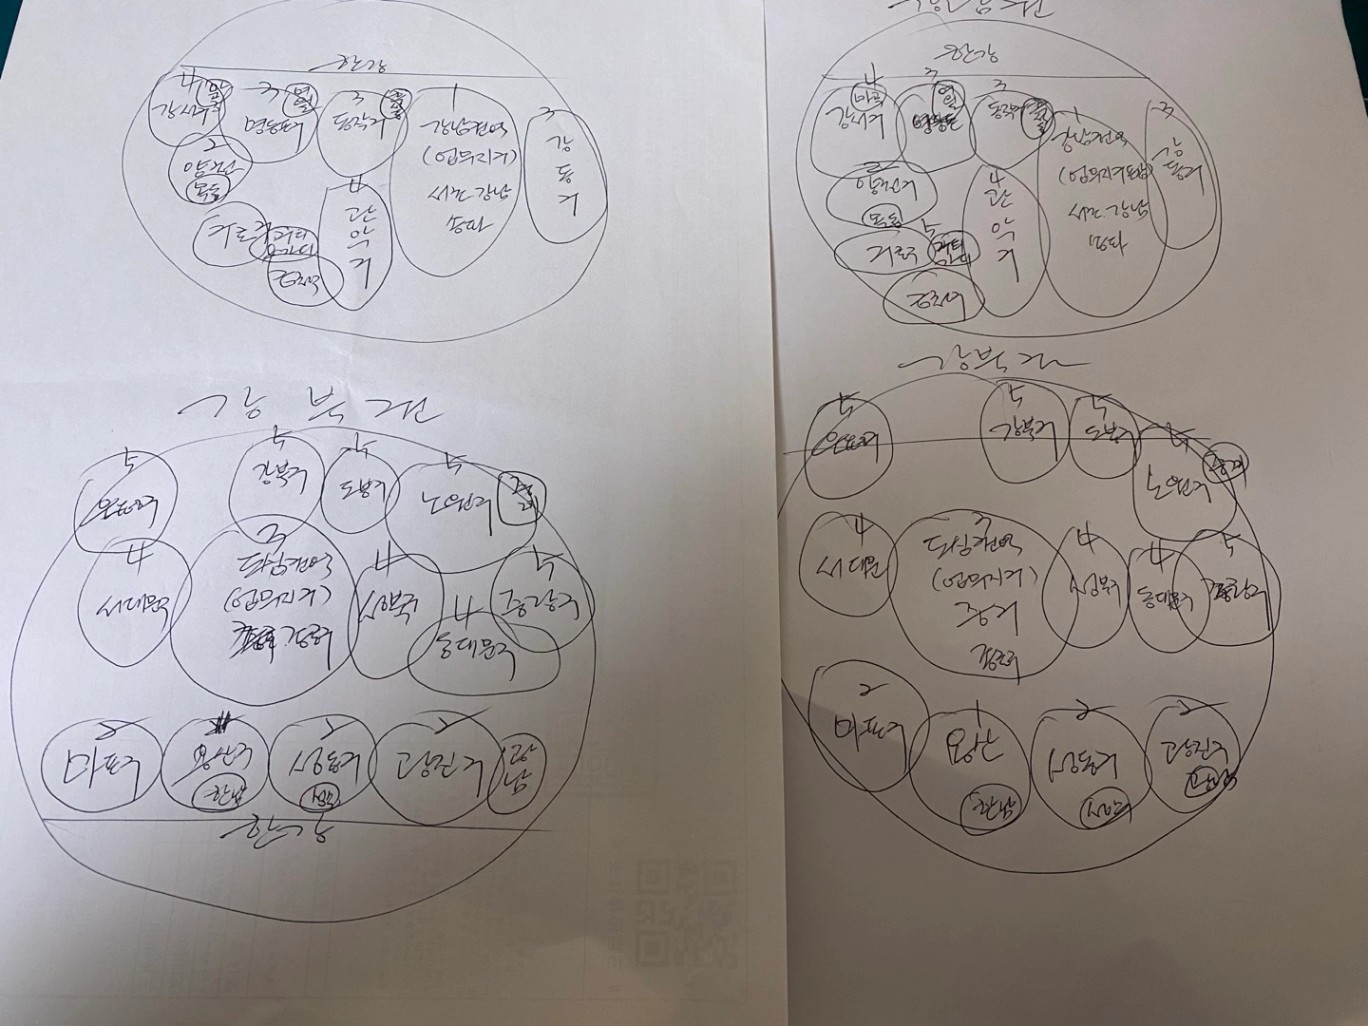 한강
4
강서구
3
영등포
3
동작구
1
강남권역
(업무지구)
서초 강남
송파
3
강
동
구
2
양천
목동
구로구
4
관
악
구
강북권
5
은평구
5
강북구
5
도봉구
5
노원구
4
서대문구
3
도심권역
(업무지구)
4
성북구
4
동대문구
5
중랑구
2
마포구
용산구
한남
2
성동구
성수
2
광진구
광남
한강
강남권
한강
4
마곡
강서구
3
영등포
3
동작구
1
강남권역
서초 강남
송파
3
강
동
구
양천구
목동
구로
5
4
관
악
구
강북권
5
은평구
5
강북구
5
도봉구
5
노원구
4
서대문
3
도심권역
(업무지구)
중구
4
성북구
4
동대문구
5
중랑구
2
마포구
1
용산
한남
2
성동구
성수
2
광진구